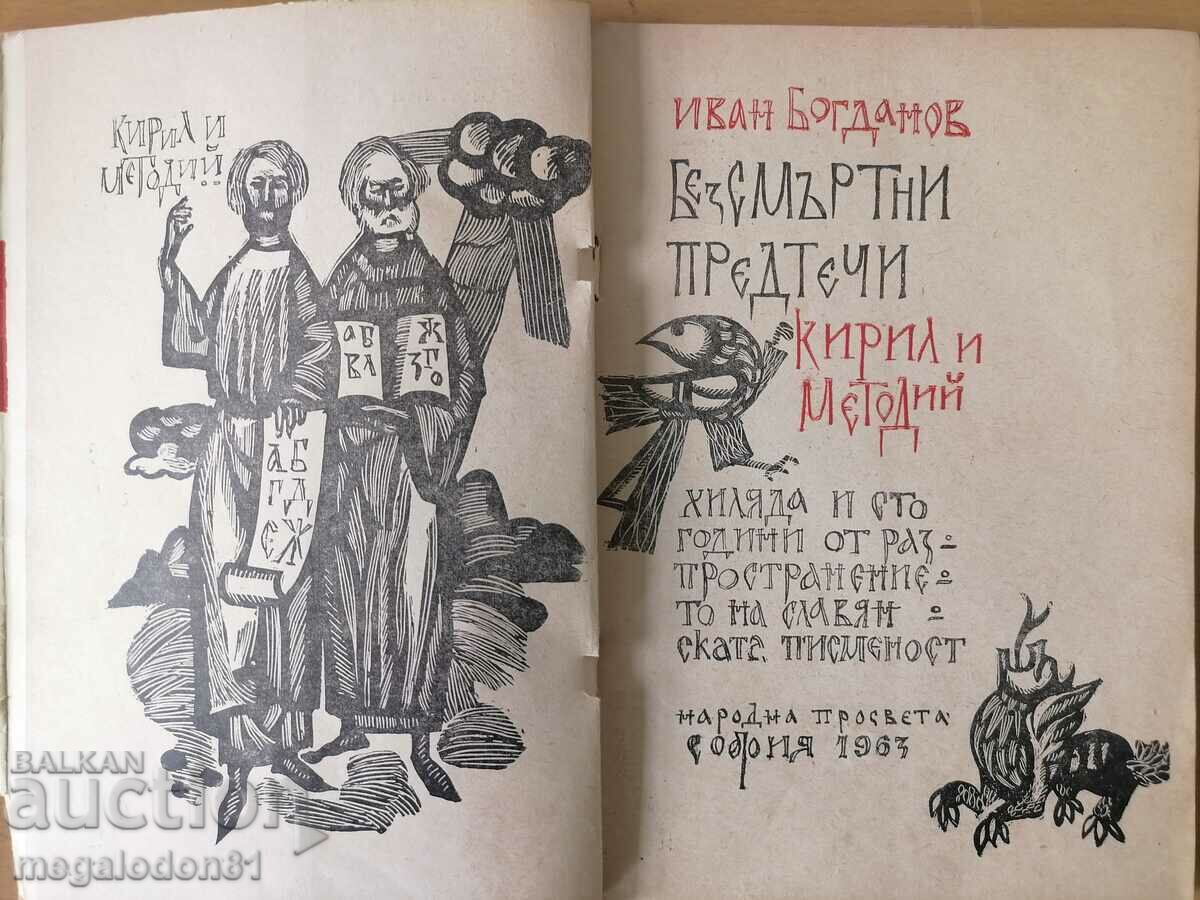 КИРИЛ И
МЕТОДИЙ
АБ
ВА
Ж
ЗГО
АБ
ГД
ЕЖ
ИВАН БОГДАНОВ
БЕЗСМЪРТНИ
ПРЕДТЕЧИ
КИРИЛ И
МЕТОДИЙ
ХИЛЯДА И СТО
ГОДИНИ ОТ РАЗ-
ПРОСТРАНЕНИЕ-
ТО НА СЛАВЯН-
СКАТА ПИСМЕНОСТ
НАРОДНА ПРОСВЕТА
СОФИЯ 1963
BALKAN
auction
megalodon81